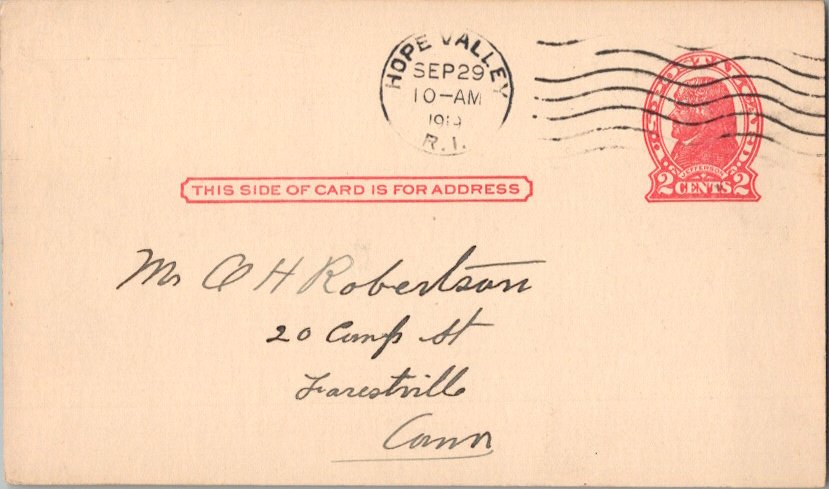 HOPE VALLEY
SEP 29
10-AM
R.I.
JEFFERSON
2 CENTS 2
THIS SIDE OF CARD IS FOR ADDRESS
Mr C H Robertson
20 Camp St
Forestville
Conn